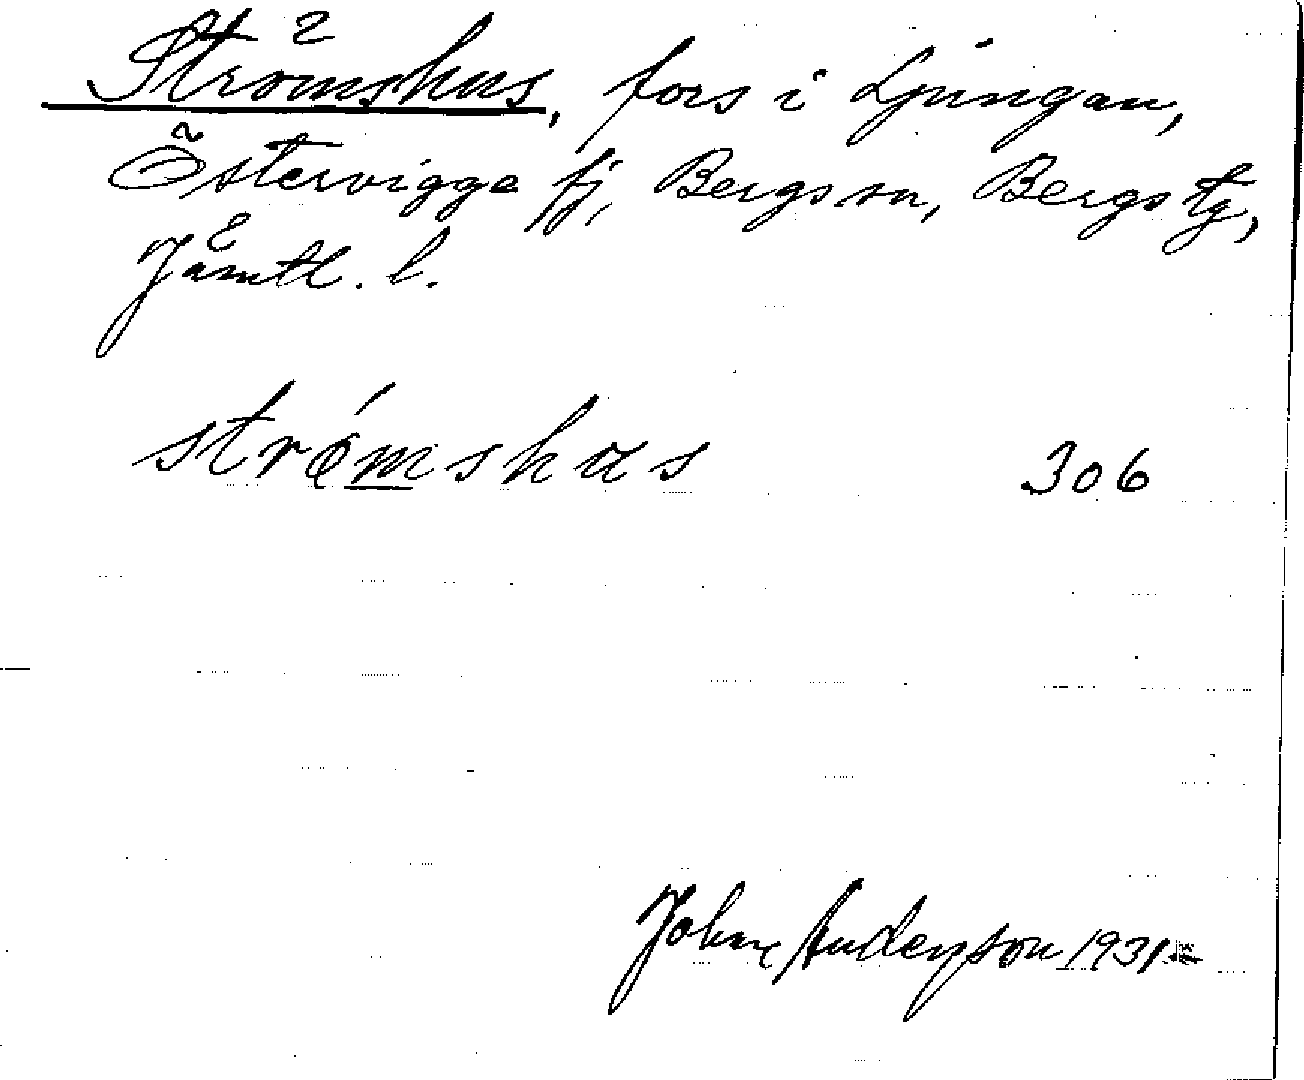 Strömshus, fors i Ljungan,
Östervigge fj, Bergs sn, Bergs tg,
Jämtl. l.
strǿmshus 306
John Anderson 1931